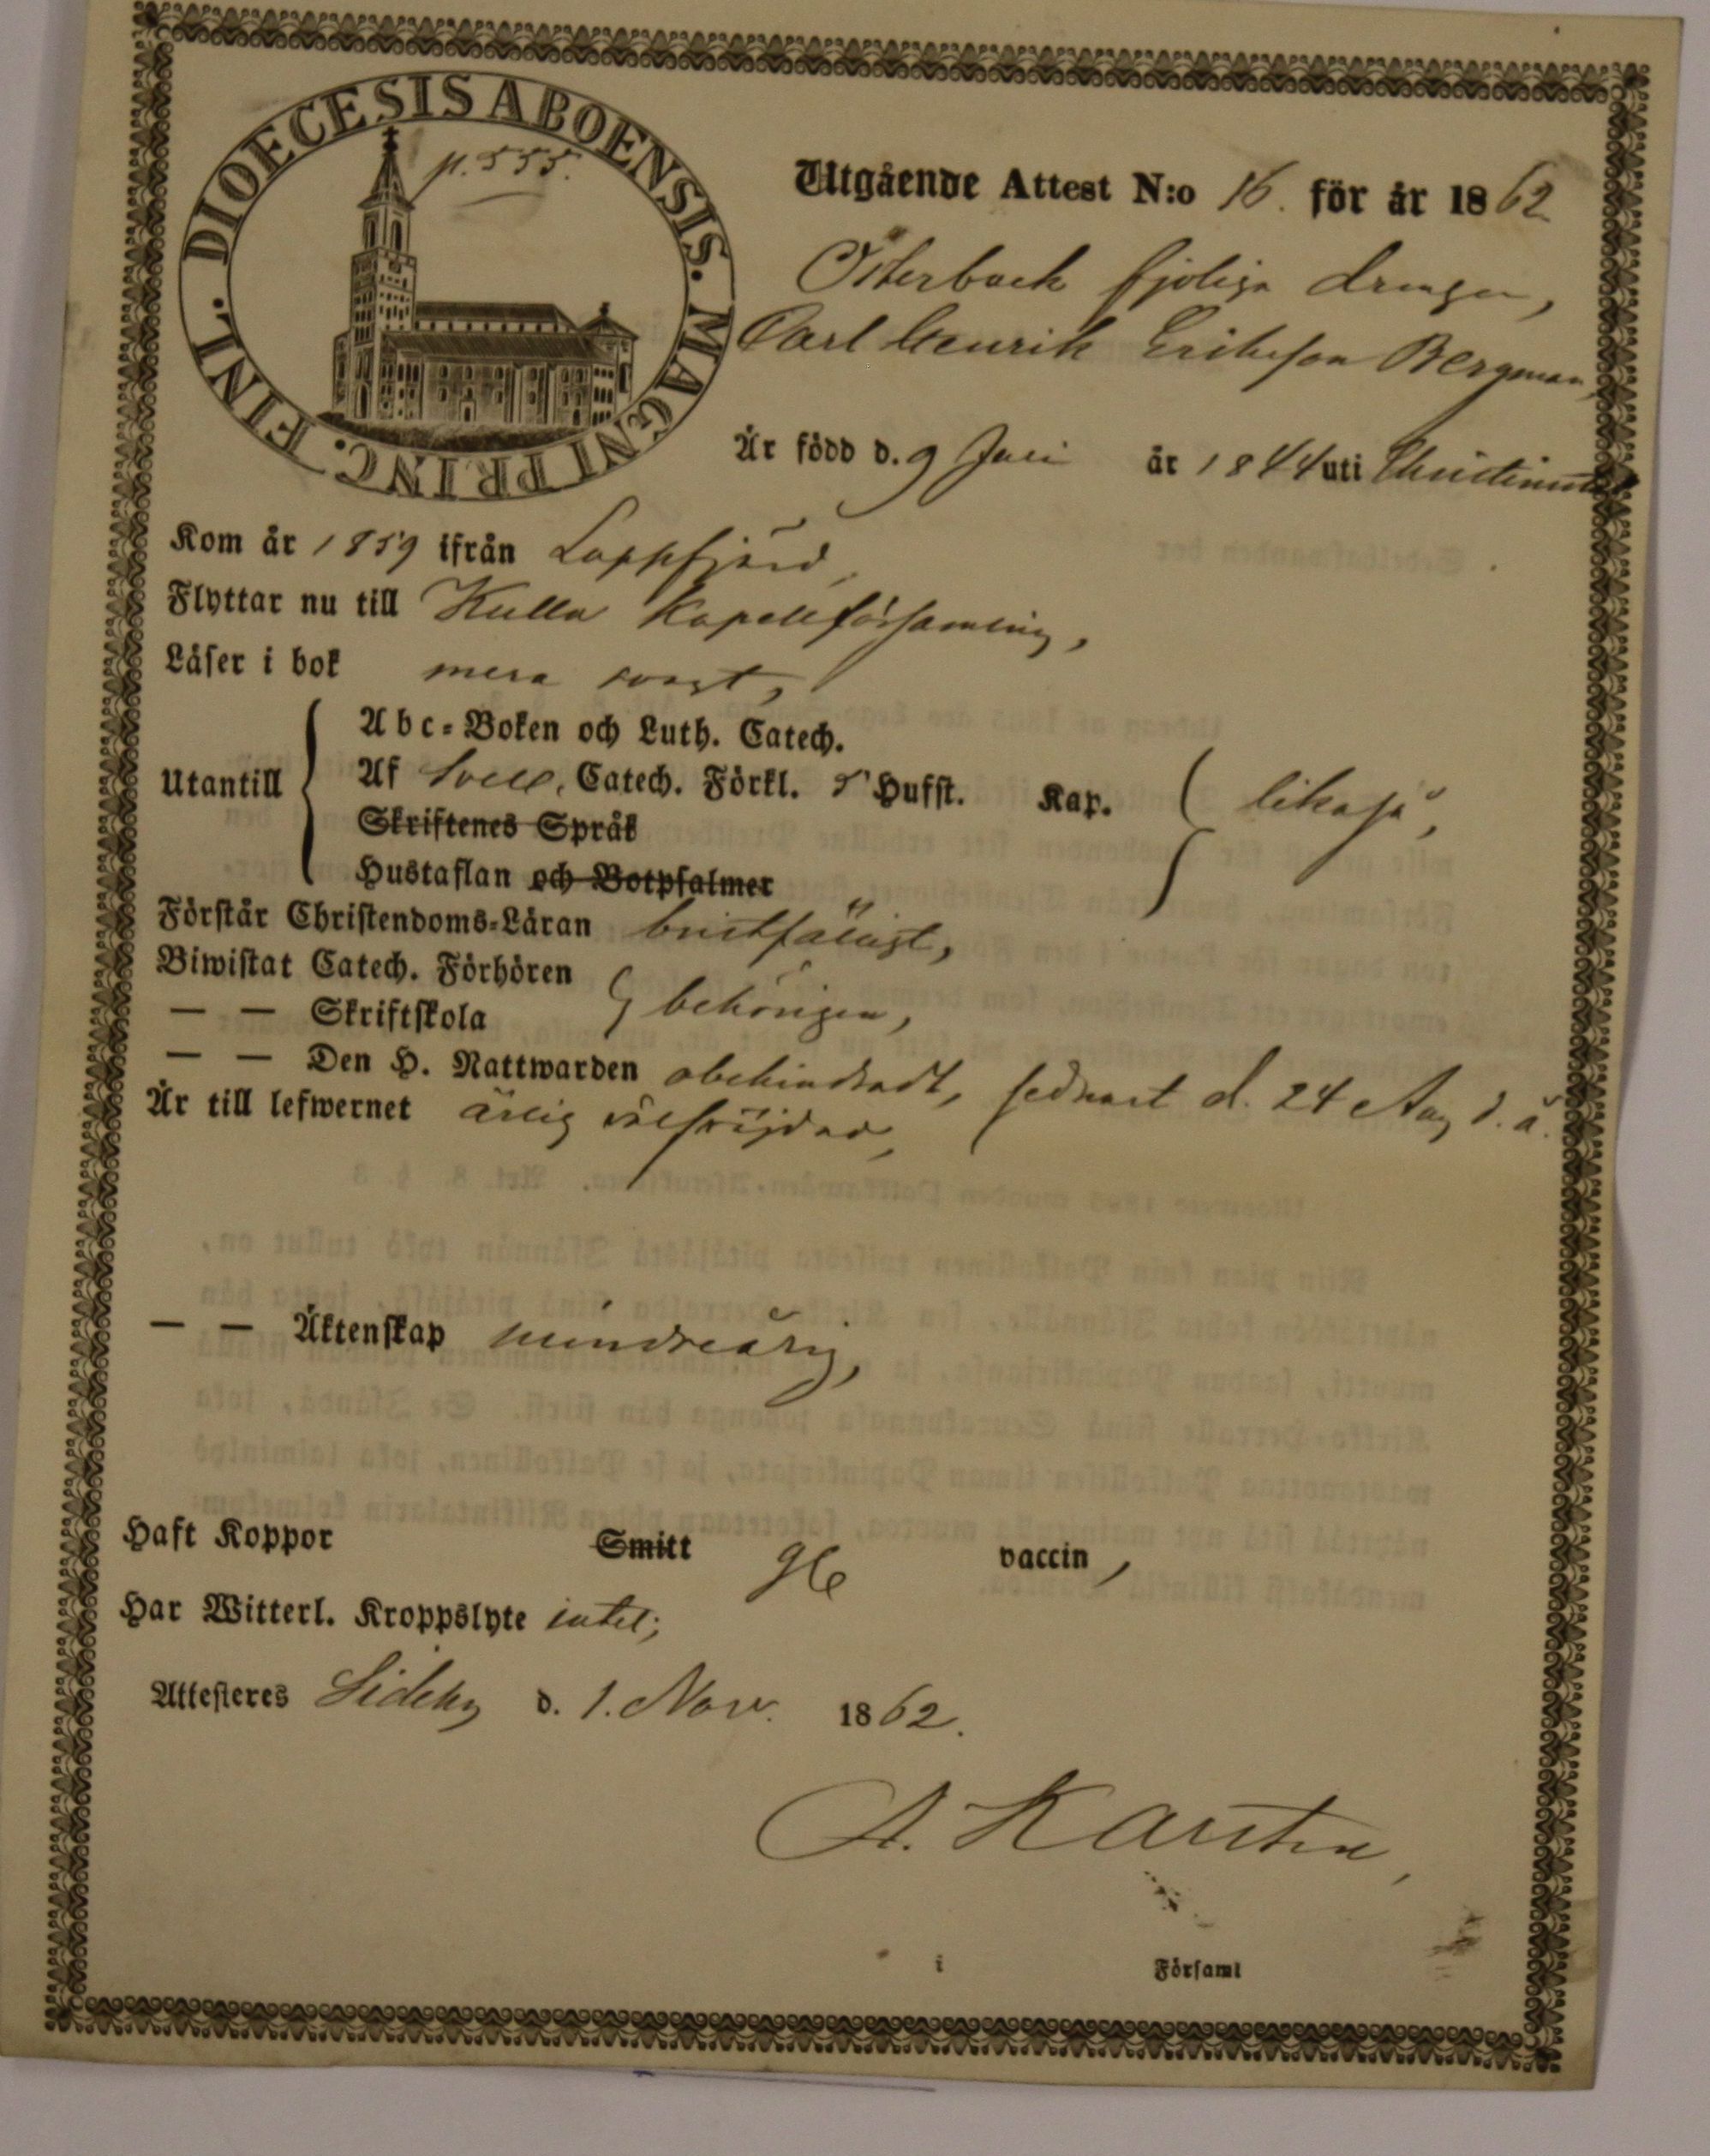 DIOECESIS ABOENSIS. MAGNI PRINC. FINL.
p. 555.
Utgående Attest N:o 16. för år 1862
Österback drengen,
Carl Henrik Eriksson Bergman,
Är född d. 9 Juni år 1844 uti Christinestad
Kom år 1859 ifrån Lappfjärd,
Flyttar nu till Kulla Kapellförsamling,
Läser i bok mera svagt,
Utantill
Abc-Boken och Luth. Catech.
Af Sveb. Catech. Förkl. 5 Hufst. Kap. likaså,
Skriftenes Språk
Hustaflan och Botpsalmer
Förstår Christendoms-Läran bristfälligt,
Biwistat Catech. Förhören
— — Skriftskola behörigen,
— — Den H. Nattwarden obehindradt, sednast d. 24 Aug d. å.
Är till lefwernet ärlig välfrejdad,
— — Äktenskap minderårig,
Haft Koppor Smitt vaccin,
Har Witterl. Kroppslyte intet;
Attesteres Sideby d. 1. Nov. 1862.
A. Karsten,
i Församl